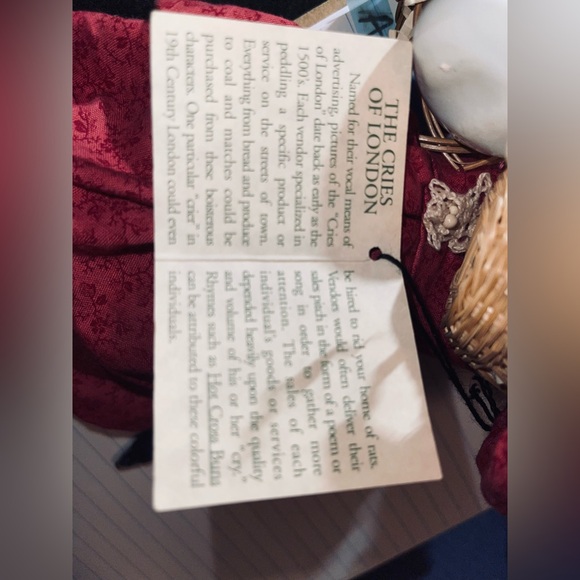 THE CRIES
OF LONDON
Named for their vocal means of
advertising, pictures of the "Cries
of London" date back as early as the
1500's. Each vendor specialized in
peddling a specific product or
service on the streets of town.
Everything from bread and produce
to coal and matches could be
purchased from these boisterous
characters. One particular "crier" in
19th Century London could even
be hired to rid your home of rats.
Vendors would often deliver their
sales pitch in the form of a poem or
song in order to gather more
attention. The sales of each
individual's goods or services
depended heavily upon the quality
and volume of his or her "cry."
Rhymes such as Hot Cross Buns
can be attributed to these colorful
individuals.
A